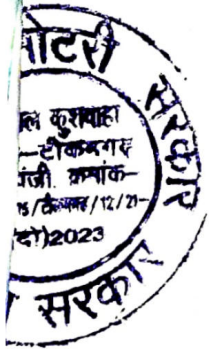 नोटरी
सरकार
ल कुशवाहा
—टीकमगढ़
पंजी. क्रमांक—
/12/21-
दो)2023
सरकार